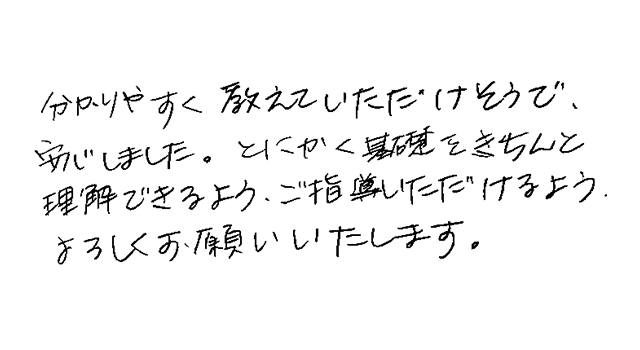 分かりやすく教えていただけそうで、
安じました。とにかく基礎をきちんと
理解できるよう、ご指導いただけるよう、
よろしくお願いいたします。